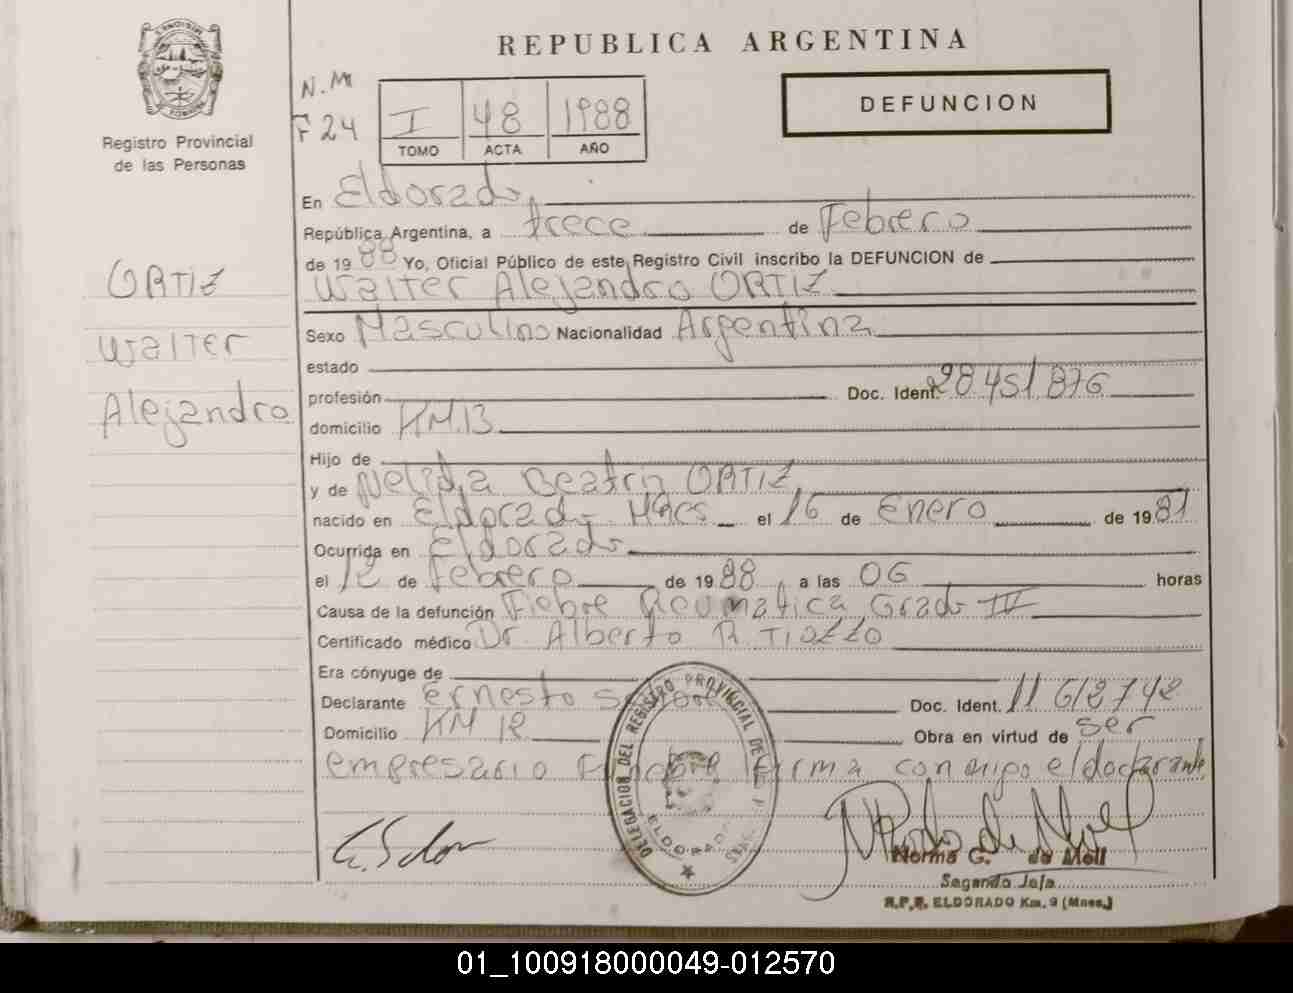 REPUBLICA ARGENTINA
Registro Provincial
de las Personas
N. M
F 24
I 48 1988
TOMO ACTA AÑO
DEFUNCION
ORTIZ
Walter
Alejandro
En Eldorado,
República Argentina, a trece de Febrero
de 1988 Yo, Oficial Público de este Registro Civil inscribo la DEFUNCION de
Walter Alejandro ORTIZ
Sexo Masculino Nacionalidad Argentina
estado
profesión Doc. Ident. 28.451.876
domicilio KM.13
Hijo de
y de Nelida Beatriz ORTIZ
nacido en Eldorado el 16 de Enero de 1981
Ocurrida en Eldorado
el 12 de Febrero de 1988, a las 06 horas
Causa de la defunción Fiebre Reumatica Grado IV
Certificado médico Dr Alberto R. Tiozzo
Era cónyuge de
Declarante Ernesto Doc. Ident. 11.612.742
Domicilio KM 12 Obra en virtud de ser
empresario firma conmigo el declarante
DELEGACION DEL REGISTRO PROVINCIAL DE
ELDORADO
Norma G. de Moll
Segundo Jefe
R.P.P. ELDORADO Km. 9 (Mnes.)
01_100918000049-012570